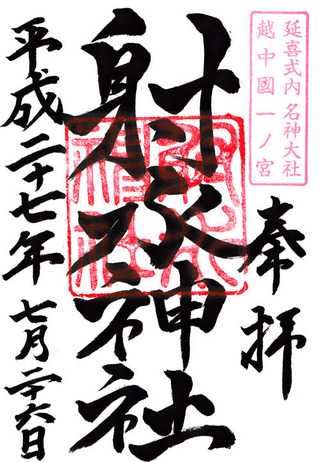 延喜式内 名神大社
越中國一ノ宮
奉拝
射水神社
平成二十七年 七月二十六日